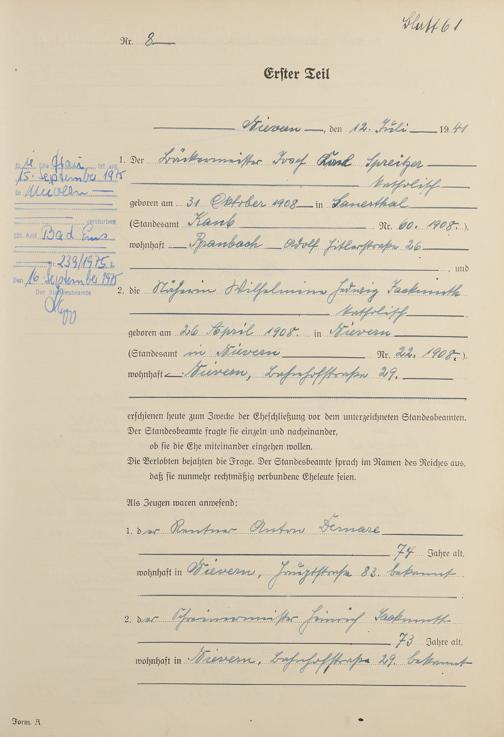 Blatt 61
Nr. 8
Erster Teil
Nievern, den 12. Juli 1941
1. Der Bäckermeister Josef Karl Spreitzer
katholisch
geboren am 31 Oktober 1908 in Sauerthal
(Standesamt Kaub Nr. 60. 1908.)
wohnhaft Ranbach Adolf Hitlerstraße 26
und
2. die Näherin Wilhelmine Hedwig Sackmuth
katholisch
geboren am 26 April 1908. in Nievern
(Standesamt in Nievern Nr. 22. 1908.)
wohnhaft Nievern, Bahnhofstraße 29.
erschienen heute zum Zwecke der Eheschließung vor dem unterzeichneten Standesbeamten.
Der Standesbeamte fragte sie einzeln und nacheinander,
ob sie die Ehe miteinander eingehen wollen.
Die Verlobten bejahten die Frage. Der Standesbeamte sprach im Namen des Reiches aus,
daß sie nunmehr rechtmäßig verbundene Eheleute seien.
Als Zeugen waren anwesend:
1. der Rentner Anton Demare
74 Jahre alt,
wohnhaft in Nievern, Hauptstraße 83. bekannt
2. der Schreinermeister Heinrich Sackmuth
73 Jahre alt,
wohnhaft in Nievern, Bahnhofstraße 29. bekannt
Form. A
Die Frau ist am
15. September 1975
in Nievern
verstorben
Bad Ems
239/1975
Den 16 September 1975
Der Standesbeamte